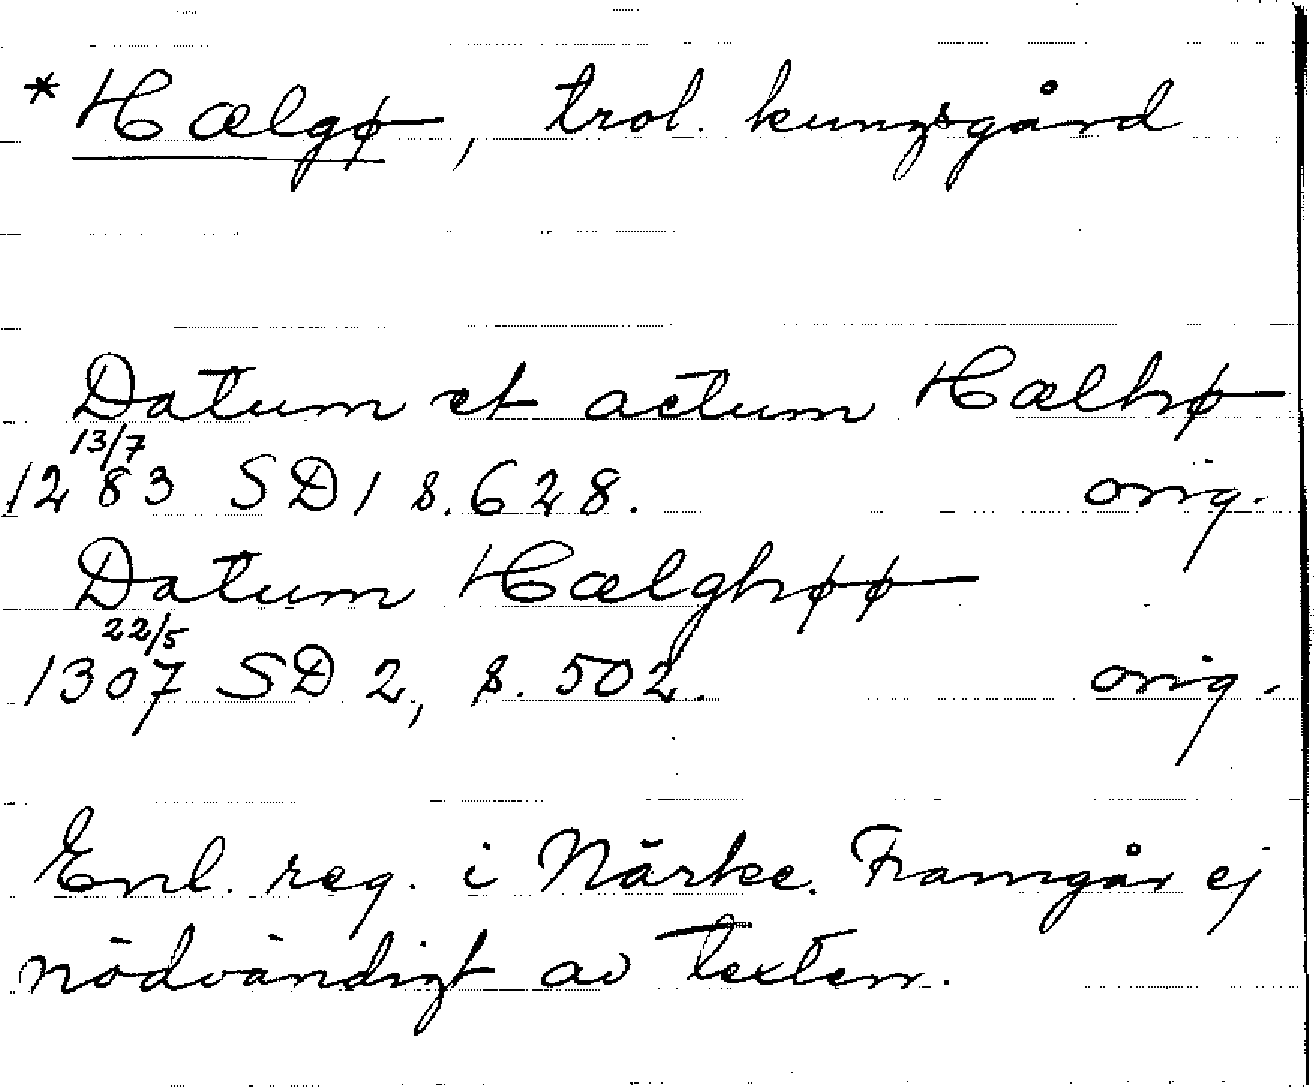 * Hælgø, trol. kungsgård
Datum et actum Hælhø
13/7
1283 SD 1 s. 628. orig.
Datum Hælghøø
22/5
1307 SD 2, s. 502. orig.
Enl. reg. i Närke. Framgår ej
nödvändigt av texten.